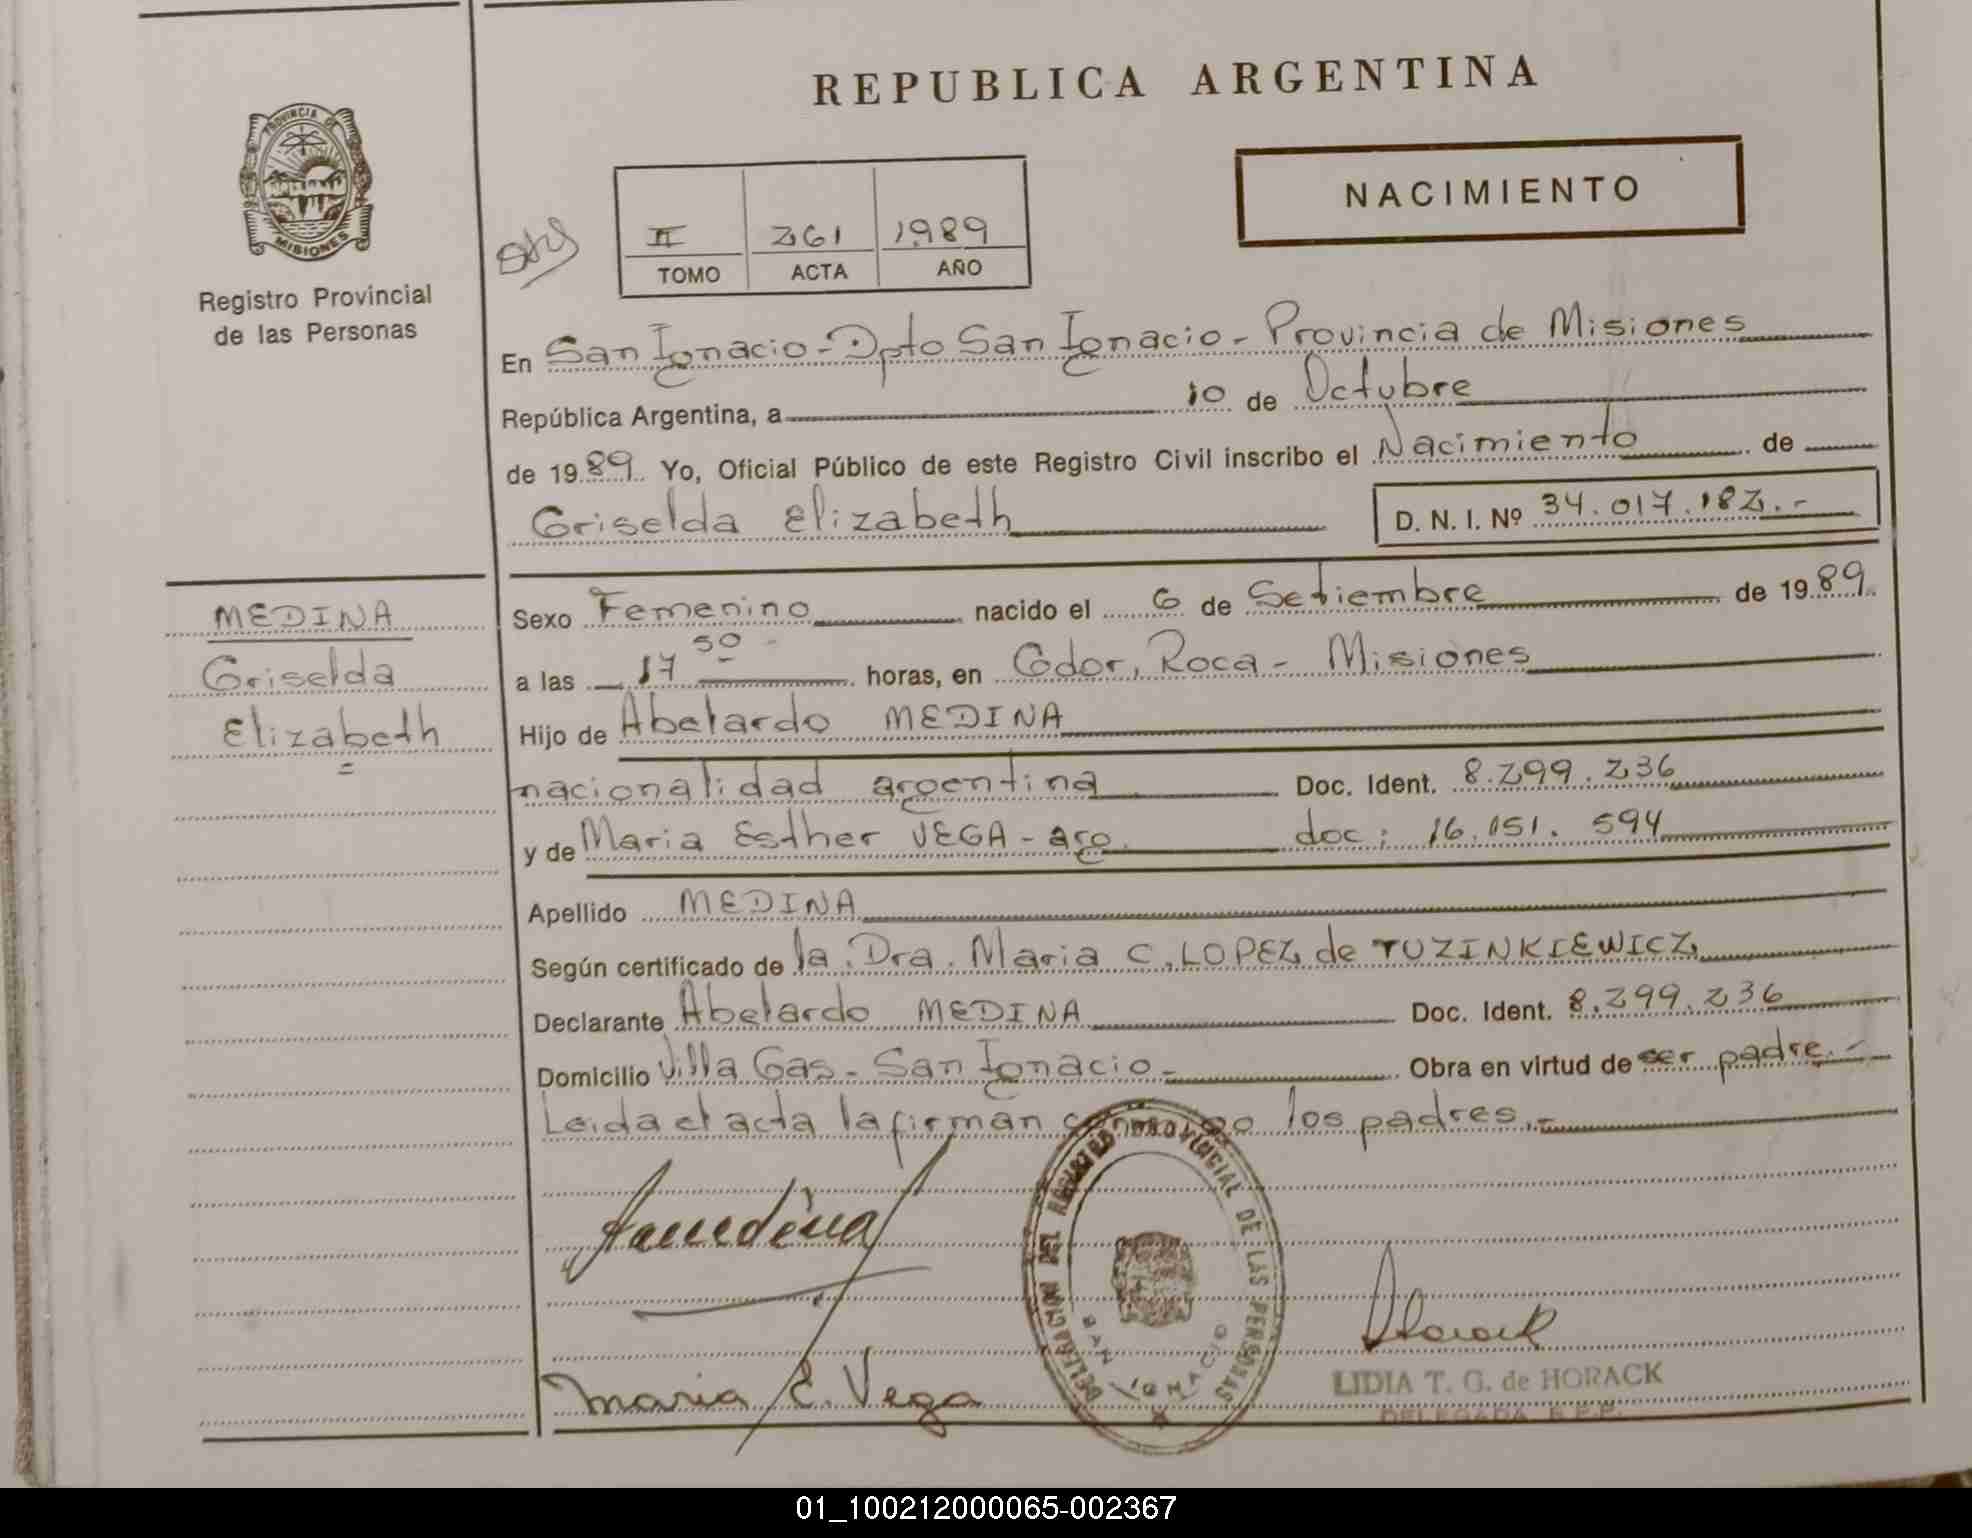 REPUBLICA ARGENTINA
PROVINCIA DE
MISIONES
Registro Provincial
de las Personas
NACIMIENTO
II 261 1989
TOMO ACTA AÑO
En San Ignacio - Dpto San Ignacio - Provincia de Misiones
República Argentina, a 10 de Octubre
de 1989 Yo, Oficial Público de este Registro Civil inscribo el Nacimiento de
Griselda Elizabeth D. N. I. Nº 34.017.182.-
MEDINA
Griselda
Elizabeth
Sexo Femenino nacido el 6 de Setiembre de 1989
a las 17 50 horas, en Gdor. Roca - Misiones
Hijo de Abelardo MEDINA
nacionalidad argentina Doc. Ident. 8.299.236
y de Maria Esther VEGA - arg. doc: 16.151.594
Apellido MEDINA
Según certificado de la Dra. Maria C. LOPEZ de TUZINKIEWICZ
Declarante Abelardo MEDINA Doc. Ident. 8.299.236
Domicilio Villa Gas - San Ignacio - Obra en virtud de ser padre.-
Leida el acta la firman conmigo los padres.-
DELEGACION DEL REGISTRO PROVINCIAL DE LAS PERSONAS
SAN IGNACIO
Amedina
Horack
LIDIA T. G. de HORACK
DELEGADA R.P.P.
Maria E. Vega
01_100212000065-002367